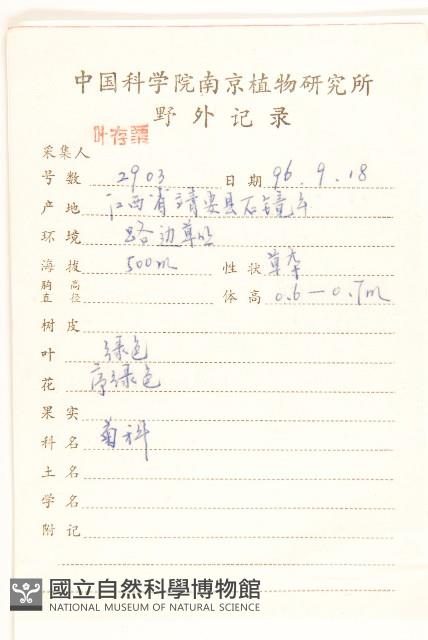 中国科学院南京植物研究所
野外记录
采集人 叶存粟
号数 2903 日期 96.9.18
产地 江西省靖安县石镜
环境 路边草丛
海拔 500m 性状 草本
胸高直径 体高 0.6—0.7m
树皮
叶 绿色
花 序绿色
果实
科名 菊科
土名
学名
附记
國立自然科學博物館
NATIONAL MUSEUM OF NATURAL SCIENCE